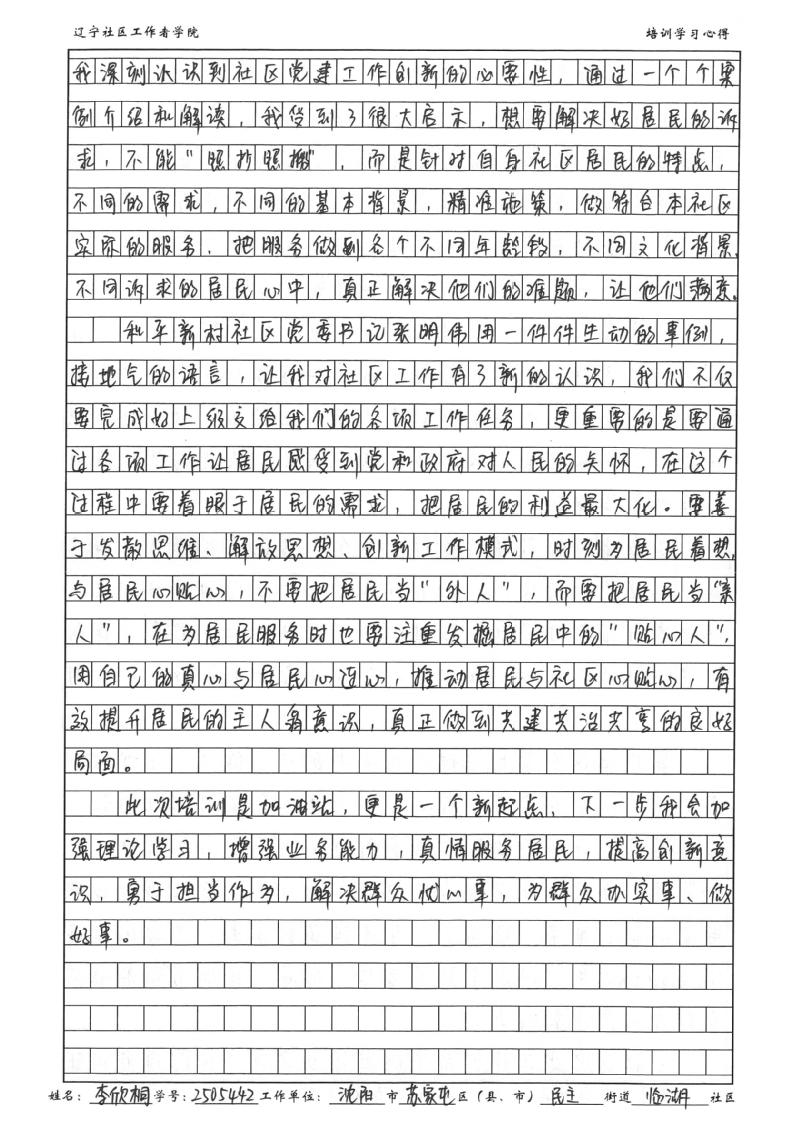 辽宁社区工作者学院 培训学习心得
我深刻认识到社区党建工作创新的必要性，通过一个个案
例介绍和解读，我受到了很大启示，想要解决好居民的诉
求，不能“照抄照搬”，而是针对自身社区居民的特点，
不同的需求，不同的基本背景，精准施策，做符合本社区
实际的服务。把服务做到各个不同年龄段，不同文化背景，
不同诉求的居民心中，真正解决他们的难题，让他们满意。
和平新村社区党委书记张明伟用一件件生动的事例，
接地气的语言，让我对社区工作有了新的认识，我们不仅
要完成好上级交给我们的各项工作任务，更重要的是要通
过各项工作让居民感受到党和政府对人民的关怀，在这个
过程中要着眼于居民的需求，把居民的利益最大化。要善
于发散思维、解放思想、创新工作模式，时刻为居民着想，
与居民心贴心，不要把居民当“外人”，而要把居民当“亲
人”，在为居民服务时也要注重发掘居民中的“贴心人”，
用自己的真心与居民心连心，推动居民与社区心贴心，有
效提升居民的主人翁意识，真正做到共建共治共享的良好
局面。
此次培训是加油站，更是一个新起点，下一步我会加
强理论学习，增强业务能力，真情服务居民，提高创新意
识，勇于担当作为，解决群众忧心事，为群众办实事、做
好事。
姓名：李欣桐 学号：2505442 工作单位：沈阳 市 苏家屯 区（县、市） 民主 街道 临湖 社区